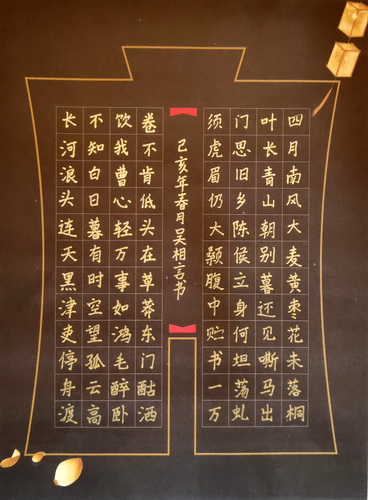 四月南风大麦黄枣花未落桐
叶长青山朝别暮还见嘶马出
门思旧乡陈侯立身何坦荡虬
须虎眉仍大颡腹中贮书一万
己亥年春月吴相言书
卷不肯低头在草莽东门酤酒
饮我曹心轻万事如鸿毛醉卧
不知白日暮有时空望孤云高
长河浪头连天黑津吏停舟渡